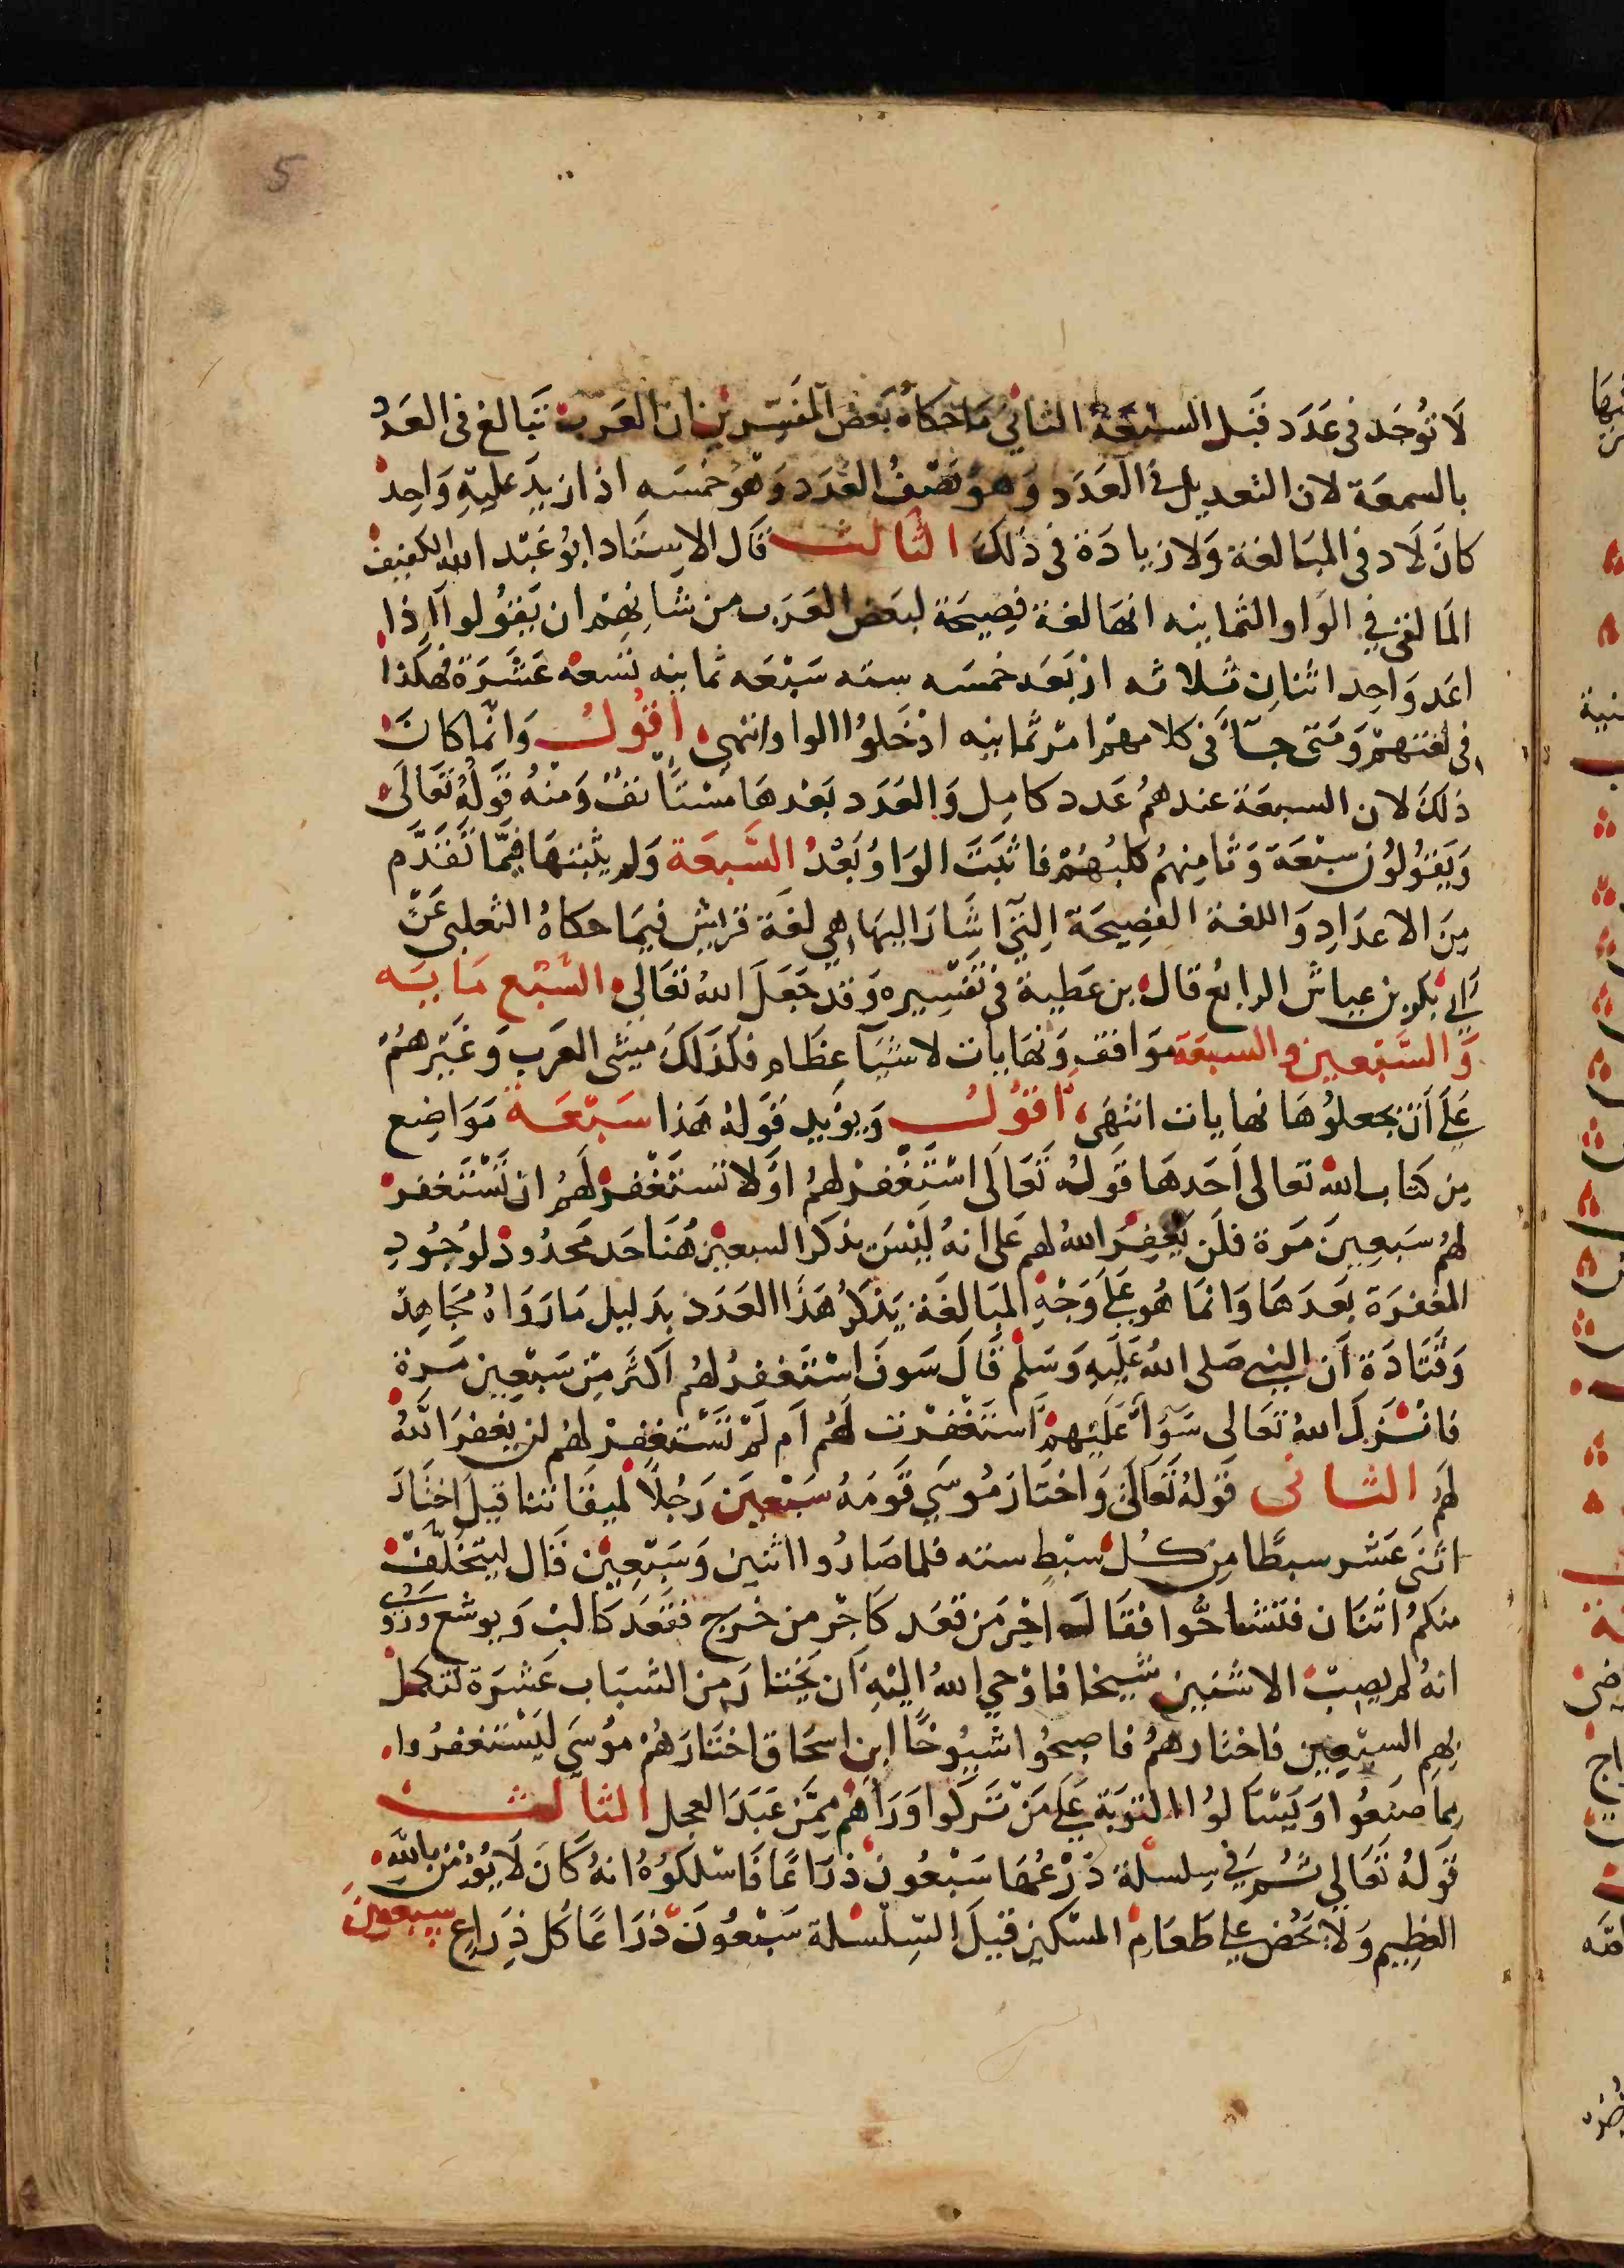 5
لَا تُوجَد فى عَدَد قبَل السبعَة الثاني مَا حكاهُ بَعض المفسّرين ان العَرب تبَالغ فى العَدد
بالسبعَة لان التعديل فى العَدَد وَهو نصْفُ العَدَد وَهُو خمسَه اذا زيدَ عليهِ وَاحِد
كانَ لَا د فى المبَالغة وَلا زيادَة فى ذلكَ الثَالث قَال الاسِتَاد ابُو عَبْد الله الكفيف
المَالغى في الوَاو الثمَانيه انهَا لغة فصِيحَة لبعَض العَرَب من شانِهِمْ ان يَقوُلوا اذا
اعَد وَاحِد اثنانِ ثلاثه اربَعَه خمسَه سته سَبْعَه ثمانيه تسعه عَشَرَة فهكذا
فى لغتهمْ وَمتى جآَ فى كلامهمْ امْر ثمانيه ادْخَلوُا الواو انتهى اقوُلُ وَانّما كانَ
ذلكَ لان السبعَة عندهمُ عَدد كامِل وَالعَدَد بَعْدهَا مسْتَانفٌ وَمنْهُ قَولهُ تعَالَى
وَيَقوُلوُنَ سبْعَة وَثامِنهمُ كلبُهُمْ فاثبَتَ الوَاوُ بَعْدُ السَّبعَة وَلم يثبتهَا فيمَّا تَقَدَّم
مِنَ الاعدَادِ وَاللغة الفصِيحَة التي اشَارَ اليهَا هي لغَة قرَيش فيمَا حكاهُ الثعلبى عَنْ
ابي بكر بن عياش الرابعُ قال بن عَطية فى تفسِيره وَقد جَعَلَ الله تعَالى السَّبْع مَا يتَه
وَالسَّبْعين والسبعَة مَوَاقف وَنهَايات لاشيَآ عِظَام فكذلكَ مَشى العَرب وَغَيْرهمُ
عَلَى أَنْ يجعلوُهَا نهايات انتهَى اقوُلُ وَيوُيد قَولهُ هَذا سَبْعَة مَوَاضِع
مِن كتاب الله تعَالى اَحَدهَا قَولهُ تَعَالَى اسْتَغْفِرْ لهمُ اوْلا تستَغْفِرْ لَهُمْ ان تسْتَغفرْ
لهمُ سَبعِينَ مَرة فلَن يَغْفِرَ اللهُ لهم عَلى انهُ لَيْسَ بذكر السبعِين هُنَا حَد محْدُودْ لوُجُودِ
المغفرَة بَعدَهَا وَانمَا هُو عَلىَ وَجْهِ المبَالغَة يَذكرُ هَذا العَدَد بدَليل مَا رَوَاهُ مجَاهِد
وَقَتَادَة اَن النبي صَلى اللهُ عَليَهِ وَسَلم قَالَ سَوف استَغفرُ لهُم اكثَر مِنْ سَبْعِين مَرة
فانْزَلَ اللهُ تعَالى سَوَآءٌ عَلَيهمْ اَستَغْفرْت لَهُمْ اَم لَمْ تَسْتَغفِرْ لهُمْ لن يَغفرَ اللهُ
لهُمَ الثانى قَوْلهُ تَعَالَىَ وَاخْتَارَ مُوسَى قَومَهُ سَبْعِينَ رَجُلًا لميقَاتنا قيلَ اختَارَ
اثنَى عَشر سبطًا من كُل سبْطٍ سته فلما صَارُوا اثنين وَسَبْعِينْ قَال ليتخَلّفْ
منكمُ اثنَان فتشاحّوا فقَالَ اجْر مَن قعَد كَاجْر من خَرج فقعَد كَالب وَيوشع وَرُوى
انهُ لم يصبْ الا ستين شيخا فاوْحى اللهُ اليْهِ اَن يَختَارَ من الشبَاب عَشرَة لتكملْ
بهم السبْعِين فاختارهمُ فاصبحُوا شيوُخًا ابن اسحَاق اخْتَارَهُمْ مُوسَى لِيَسْتَغفرُوا
ممَا صنعُوا وَيَسْاَلوُا التوَبَة عَلَى مَنْ تَرَكوا وَرَآهُم ممَّن عَبَدَ العِجل الثالث
قَولهُ تَعَالى ثُم في سِلسلة ذَرْعُهَا سَبْعُونَ ذرَاعًا فَاسْلكوُهُ انهُ كَانَ لَا يُؤمِنُ باللهِ
العَظِيم وَلا يَحُض عَلى طَعَامِ المسْكين قيلَ السِّلْسلة سَبْعُونَ ذرَاعًا كُل ذِرَاعٍ سبعونَ